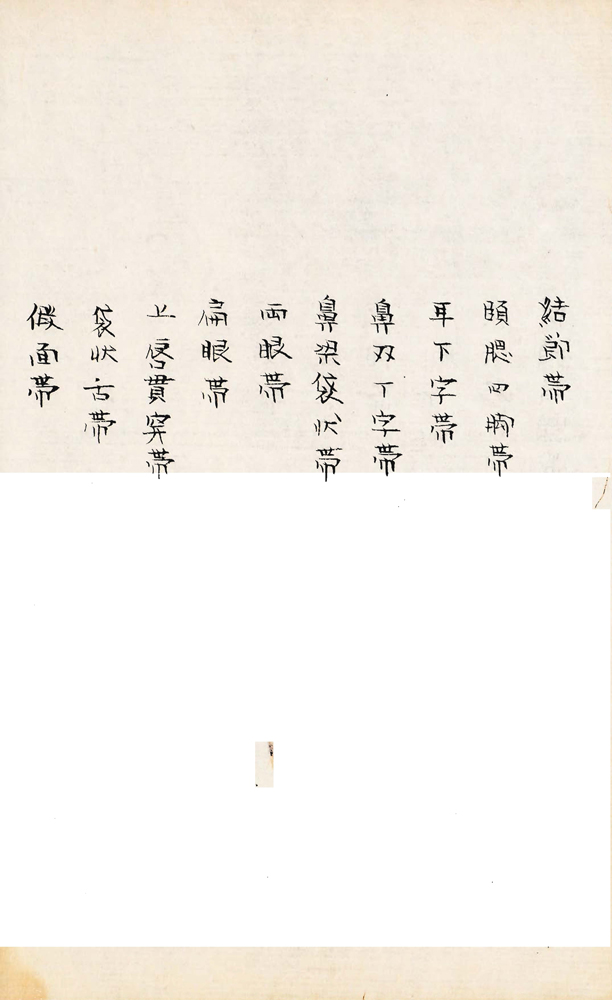 結節帯
頤腮四胸帯
耳下字帯
鼻双丁字帯
鼻梁袋状帯
両眼帯
扁眼帯
上唇貫穿帯
袋状舌帯
假面帯